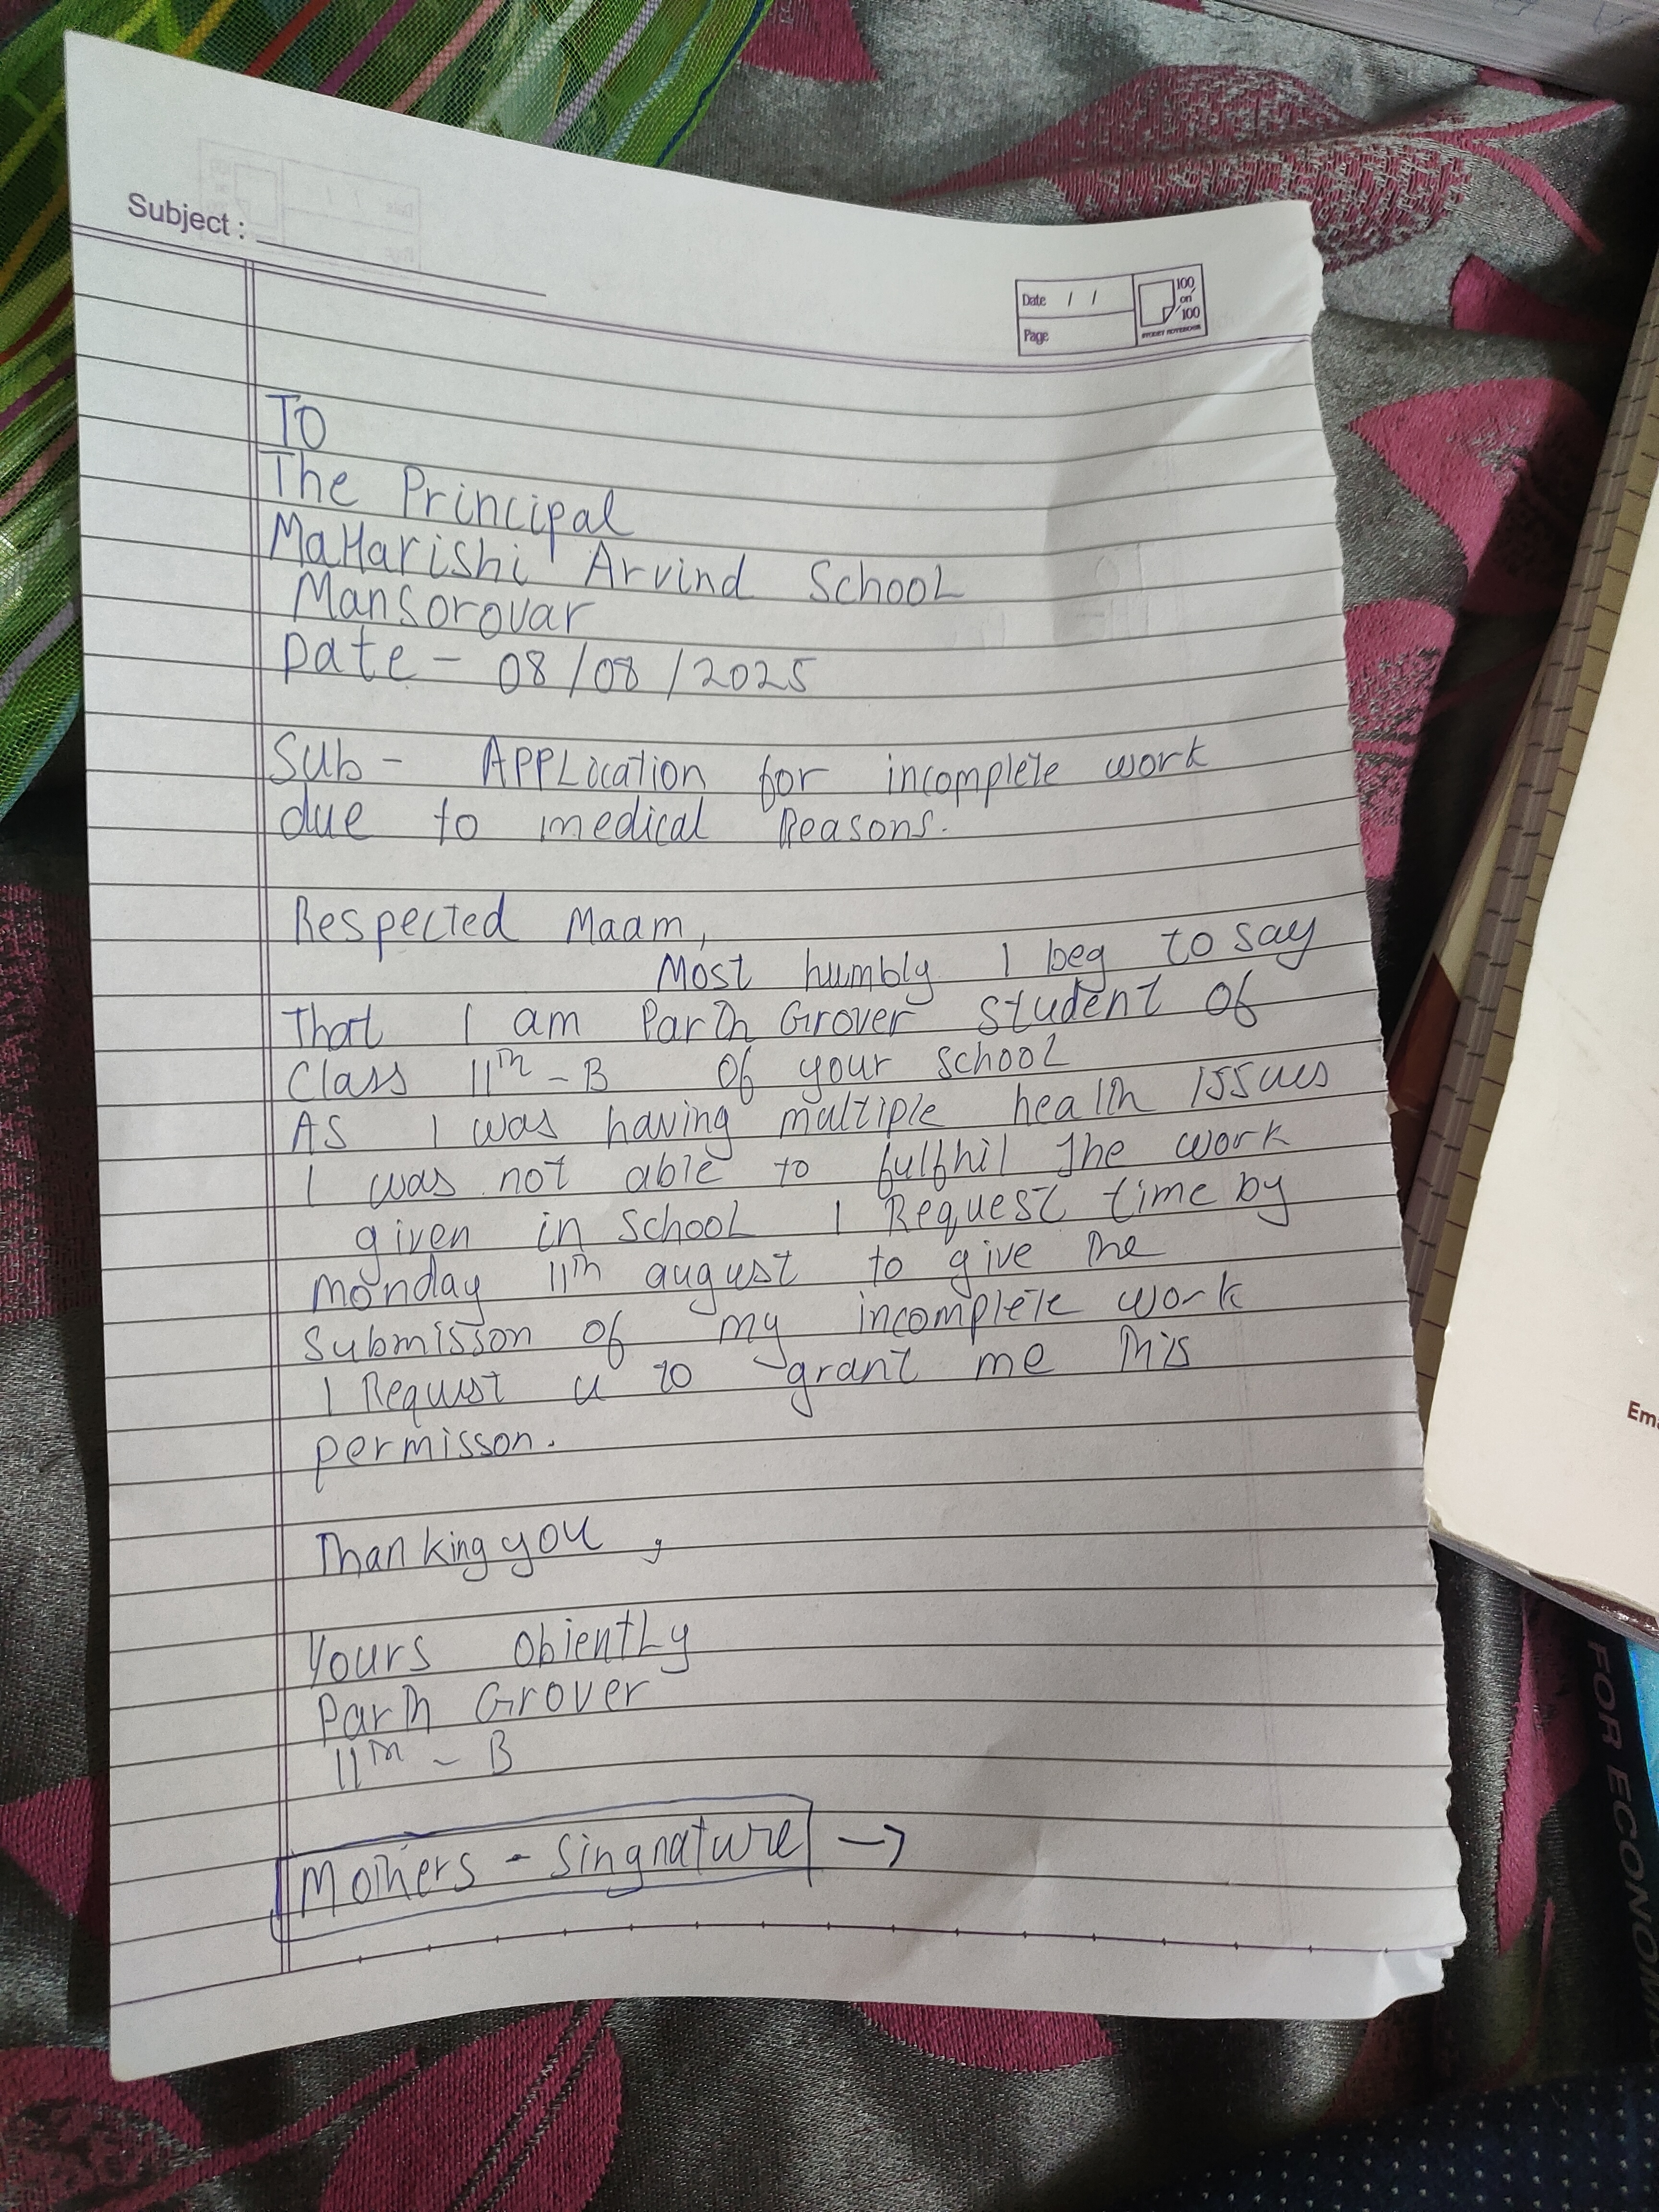 Subject :
Date / /
Page
100
on
100
STUDENT NOTEBOOK
TO
The Principal
MaHarishi Arvind School
Mansorovar
Date - 08/08/2025
Sub - APPLication for incomplete work
due to medical Reasons.
Respected Maam,
Most humbly I beg to say
That I am Parth Grover student of
Class 11th - B of your school
As I was having multiple health issues
I was not able to fulfhil the work
given in school I Request time by
monday 11th august to give the
Submisson of my incomplete work
I Requst u to grant me this
permisson.
Thanking you,
Yours obiently
Parth Grover
11th - B
Mothers - Singnature →
Ema
FOR ECONOM